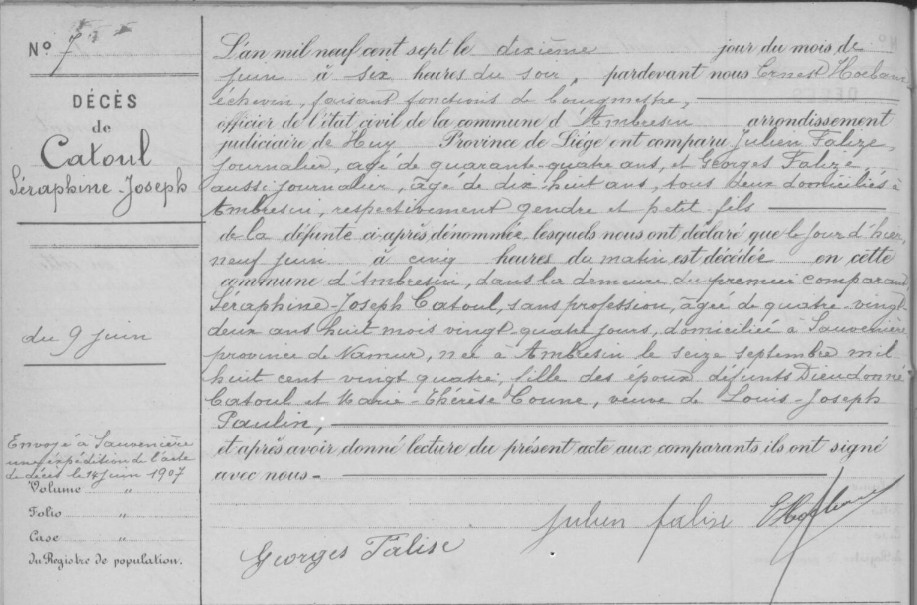 Nº 7
DÉCÈS
de
Catoul
Séraphine-Joseph
du 9 juin
Envoyé à Sauvenière
une expédition de l'acte
de décès le 14 juin 1907
Volume "
Folio "
Case "
du Registre de population.
L'an mil neuf cent sept le dixième jour du mois de
juin à six heures du soir, pardevant nous Ernest
échevin, faisant fonctions de bourgmestre,
officier de l'état civil de la commune d'Ambresin arrondissement
judiciaire de Huy Province de Liége ont comparu Julien Falize,
journalier, agé de quarante-quatre ans, et Georges Falize,
aussi journalier, âgé de dix huit ans, tous deux domiciliés à
Ambresin, respectivement gendre et petit-fils
de la défunte ci-après dénommée lesquels nous ont déclaré que le jour d'hier,
neuf juin à cinq heures du matin est décédée en cette
commune d'Ambresin, dans la demeure du premier comparant
Séraphine-Joseph Catoul, sans profession, âgée de quatre-vingt
deux ans huit mois vingt-quatre jours, domiciliée à Sauvenière
province de Namur, née à Ambresin le seize septembre mil
huit cent vingt quatre, fille des époux défunts Dieudonné
Catoul et Marie-Thérèse Coune, veuve de Louis-Joseph
Paulin;
et après avoir donné lecture du présent acte aux comparants ils ont signé
avec nous.
Julien falise
Georges Falise